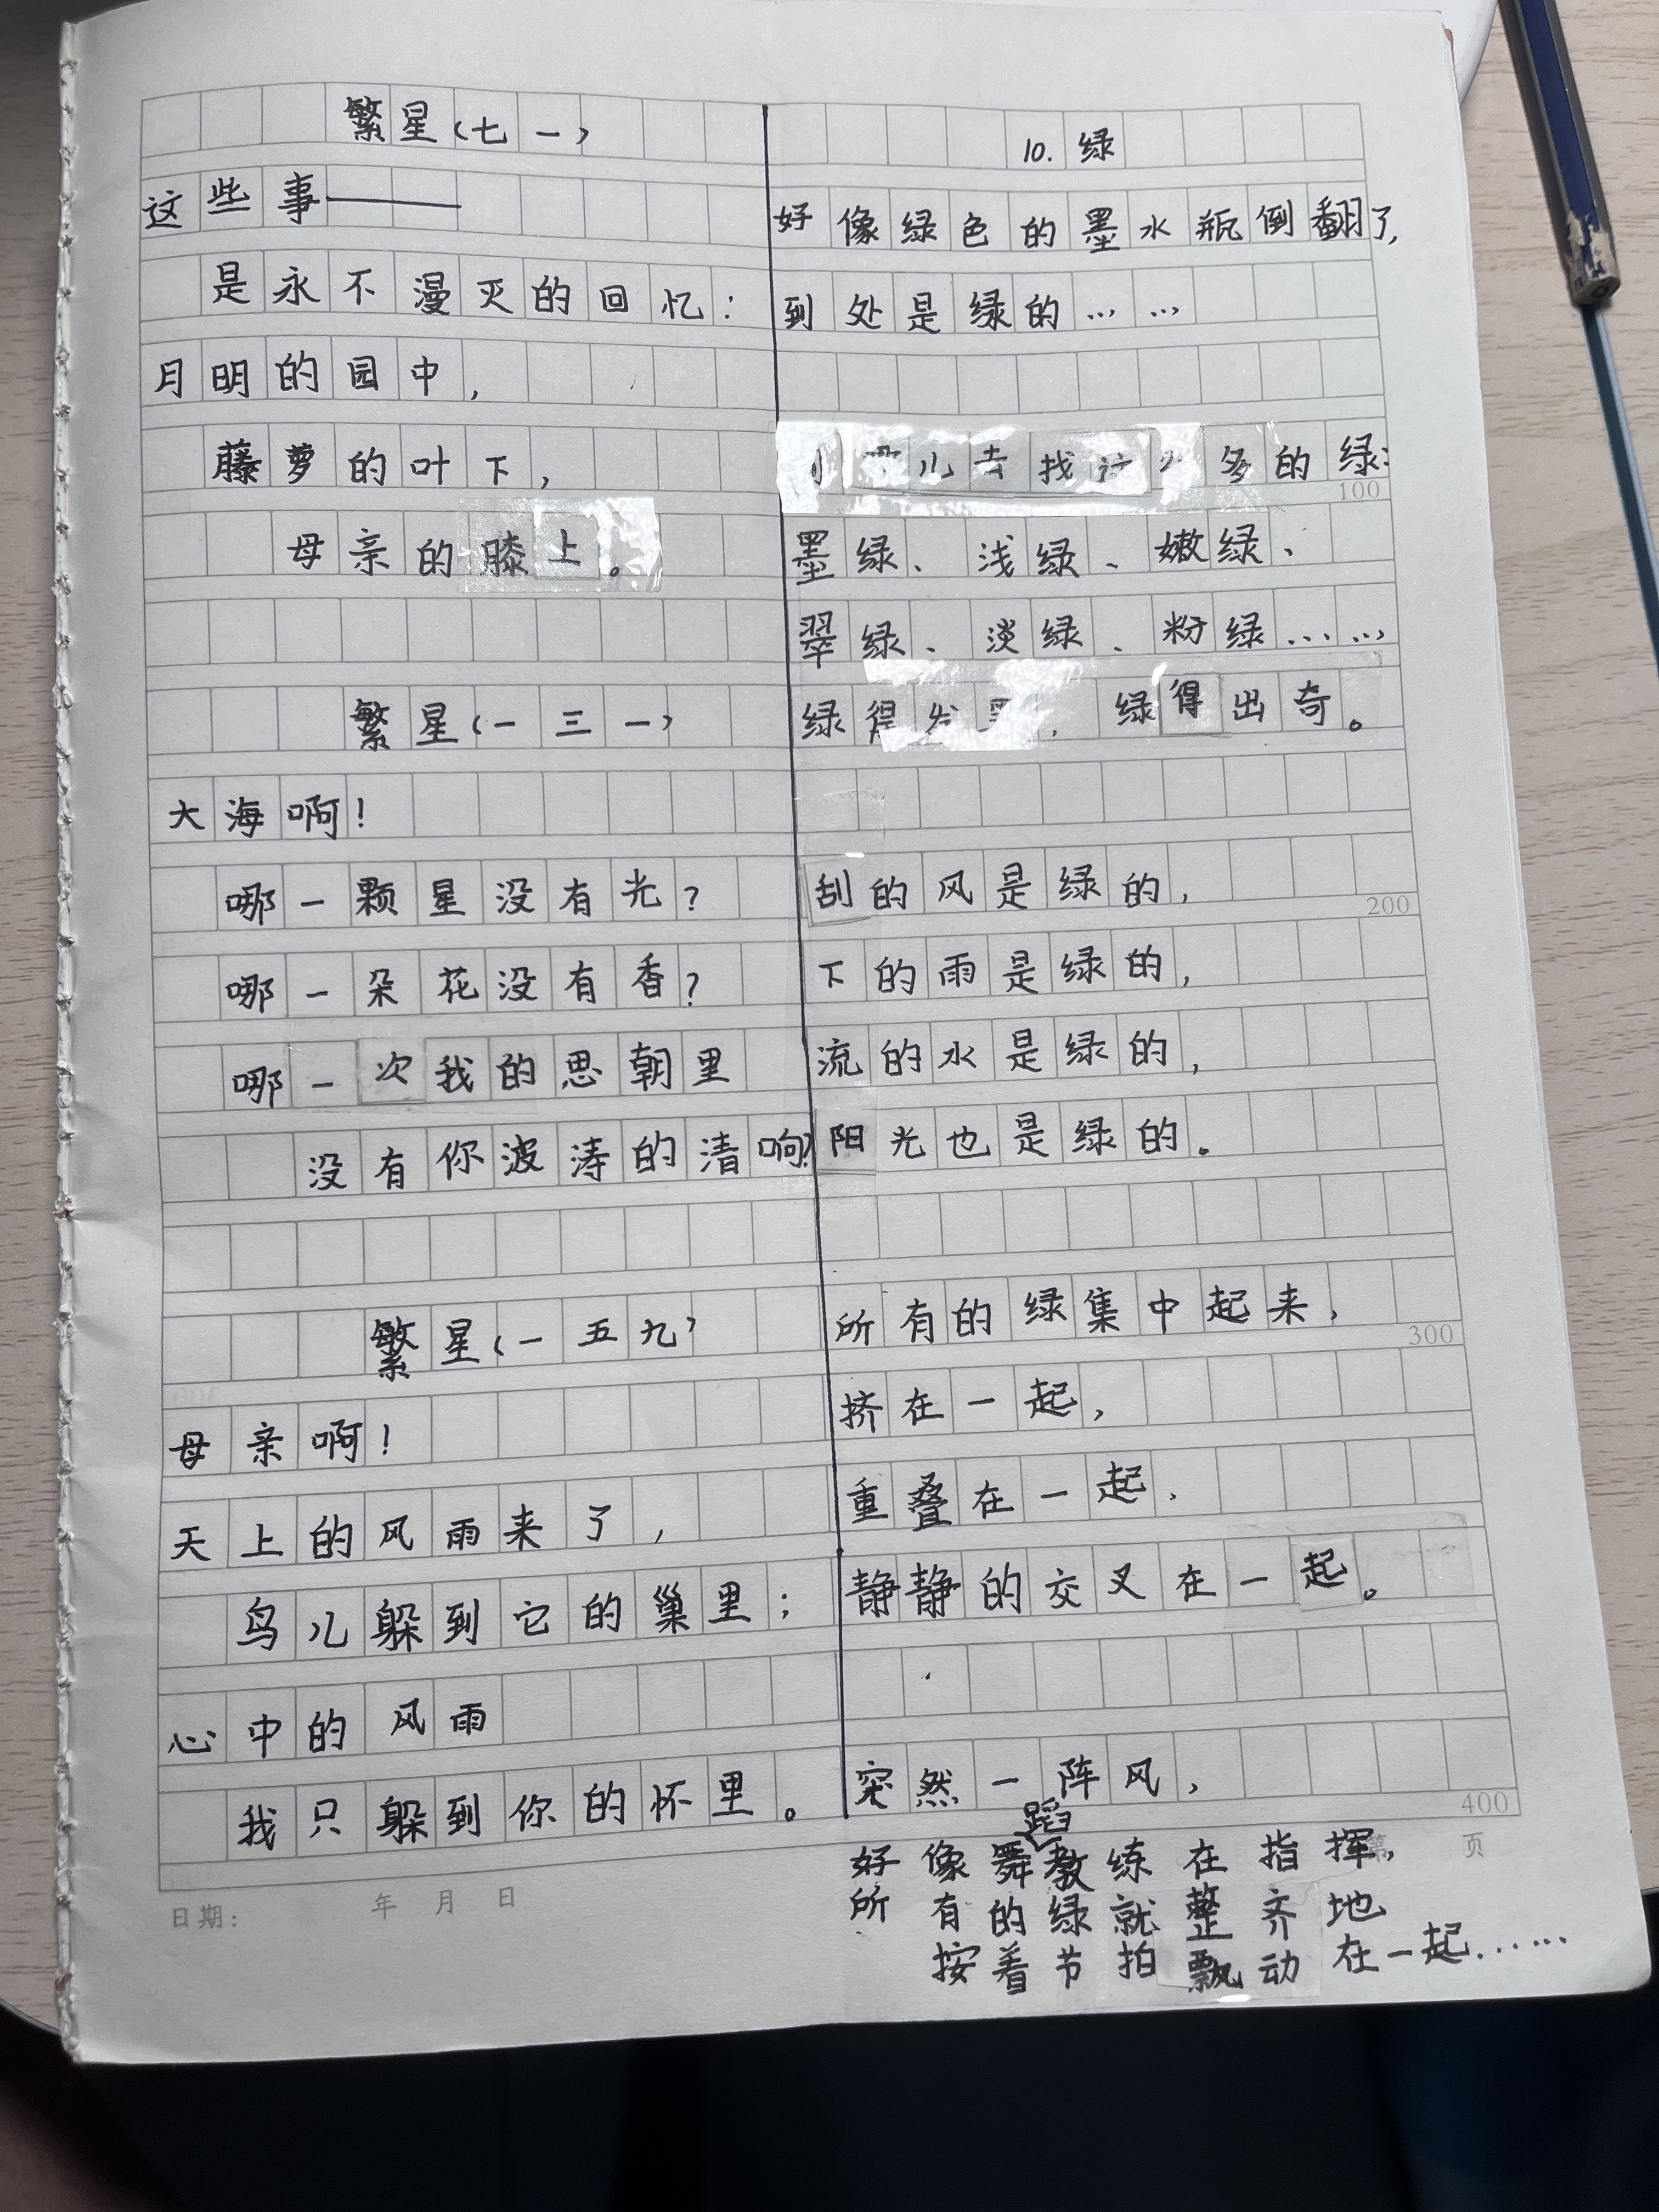 繁星(七一)
这些事——
是永不漫灭的回忆:
月明的园中,
藤萝的叶下,
母亲的膝上。
繁星(一三一)
大海啊!
哪一颗星没有光?
哪一朵花没有香?
哪一次我的思朝里
没有你波涛的清响?
繁星(一五九)
母亲啊!
天上的风雨来了,
鸟儿躲到它的巢里;
心中的风雨
我只躲到你的怀里。
10.绿
好像绿色的墨水瓶倒翻了,
到处是绿的……
儿去找这多的绿:
墨绿、浅绿、嫩绿、
翠绿、淡绿、粉绿……
绿得发,绿得出奇。
刮的风是绿的,
下的雨是绿的,
流的水是绿的,
阳光也是绿的。
所有的绿集中起来,
挤在一起,
重叠在一起、
静静的交叉在一起。
突然一阵风,
好像舞蹈教练在指挥,
所有的绿就整齐地
按着节拍飘动在一起……
100
200
300
400
第 页
日期: 年 月 日